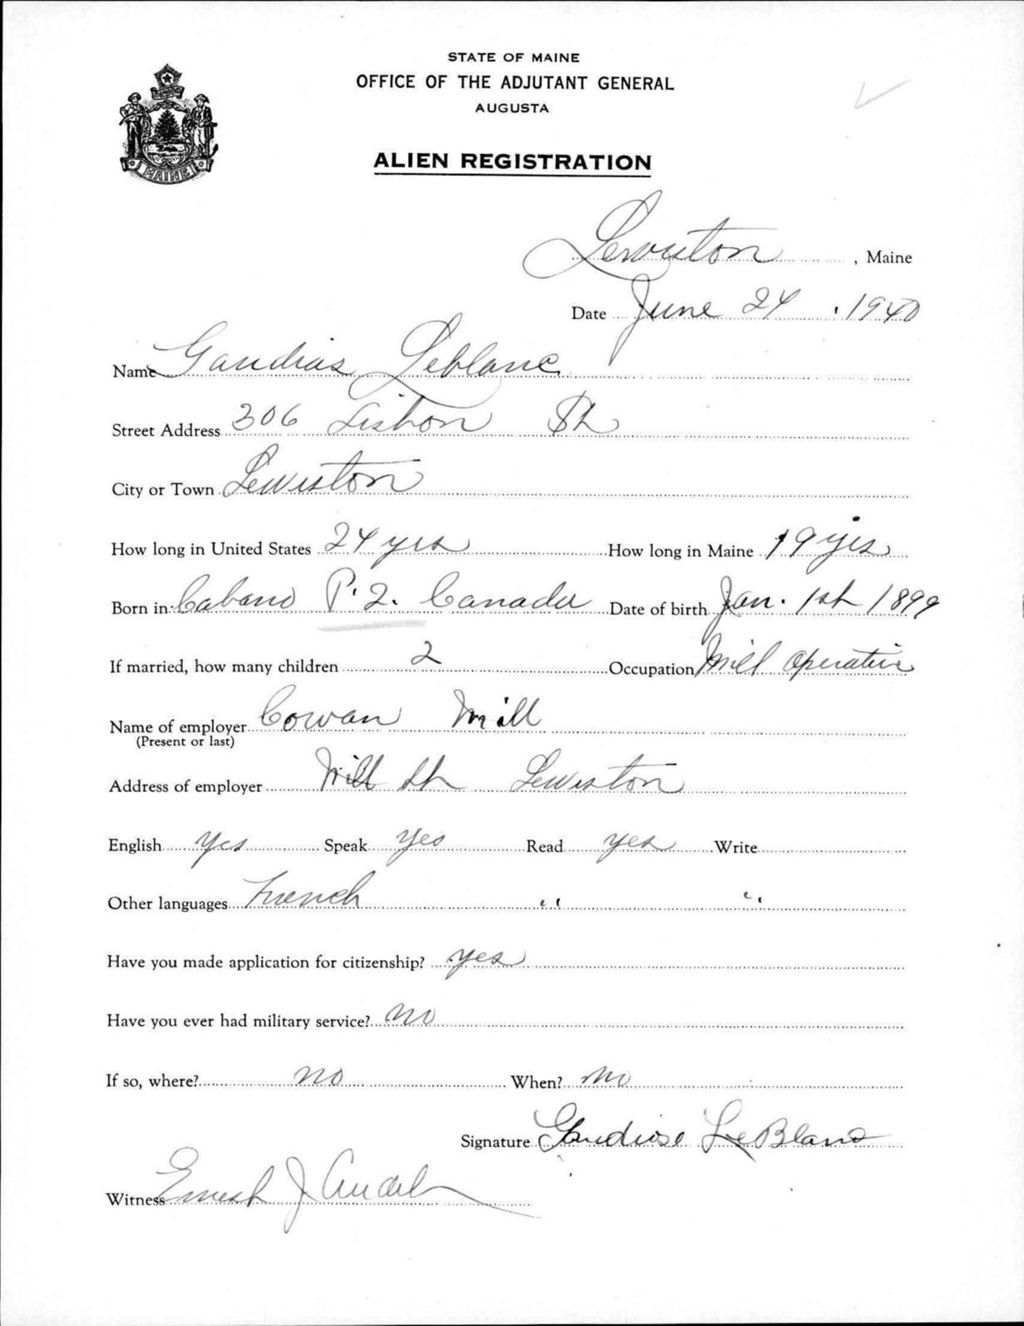 STATE OF MAINE
OFFICE OF THE ADJUTANT GENERAL
AUGUSTA
MAINE
ALIEN REGISTRATION
Lewiston, Maine
Date June 24, 1940
Name Gaudias Leblanc
Street Address 306 Lisbon St
City or Town Lewiston
How long in United States 24 yrs How long in Maine 19 yrs
Born in Cabano P.Q. Canada Date of birth Jan. 1st 1899
If married, how many children 2 Occupation Mill Operative
Name of employer Cowan Mill
(Present or last)
Address of employer Mill St Lewiston
English yes Speak yes Read yes Write
Other languages French " "
Have you made application for citizenship? yes
Have you ever had military service? No
If so, where? no When? No
Signature Gaudiose LeBlanc
Witness Ernest J